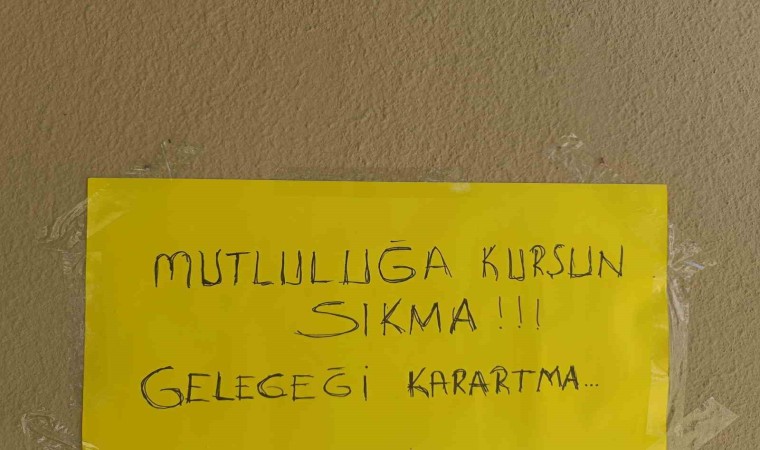 MUTLULUĞA KURŞUN
SIKMA !!!
GELECEĞİ KARARTMA...